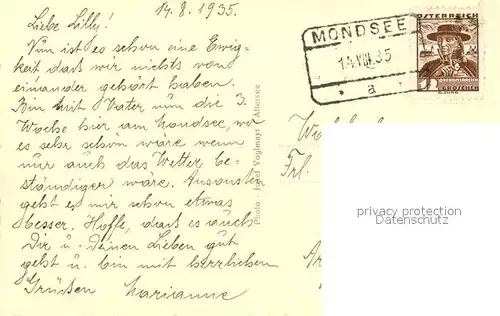 14.8.1935.
Liebe Lilly!
Nun ist es schon eine Ewig-
keit dass wir nichts von
einander gehört haben.
Bin mit Vater nun die 3.
Woche hier am Mondsee, wo
es sehr schön wäre wenn
nur auch das Wetter be-
ständiger wäre. Ansonsten
geht es mir schon etwas
besser. Hoffe, dass es auch
Dir u. deinen Lieben gut
geht u. bin mit herzlichen
Grüssen Marianne
Photo Josef Voglmayr Attersee
MONDSEE
14.VIII.35
a
ÖSTERREICH
GROSCHEN
Frl.
privacy protection